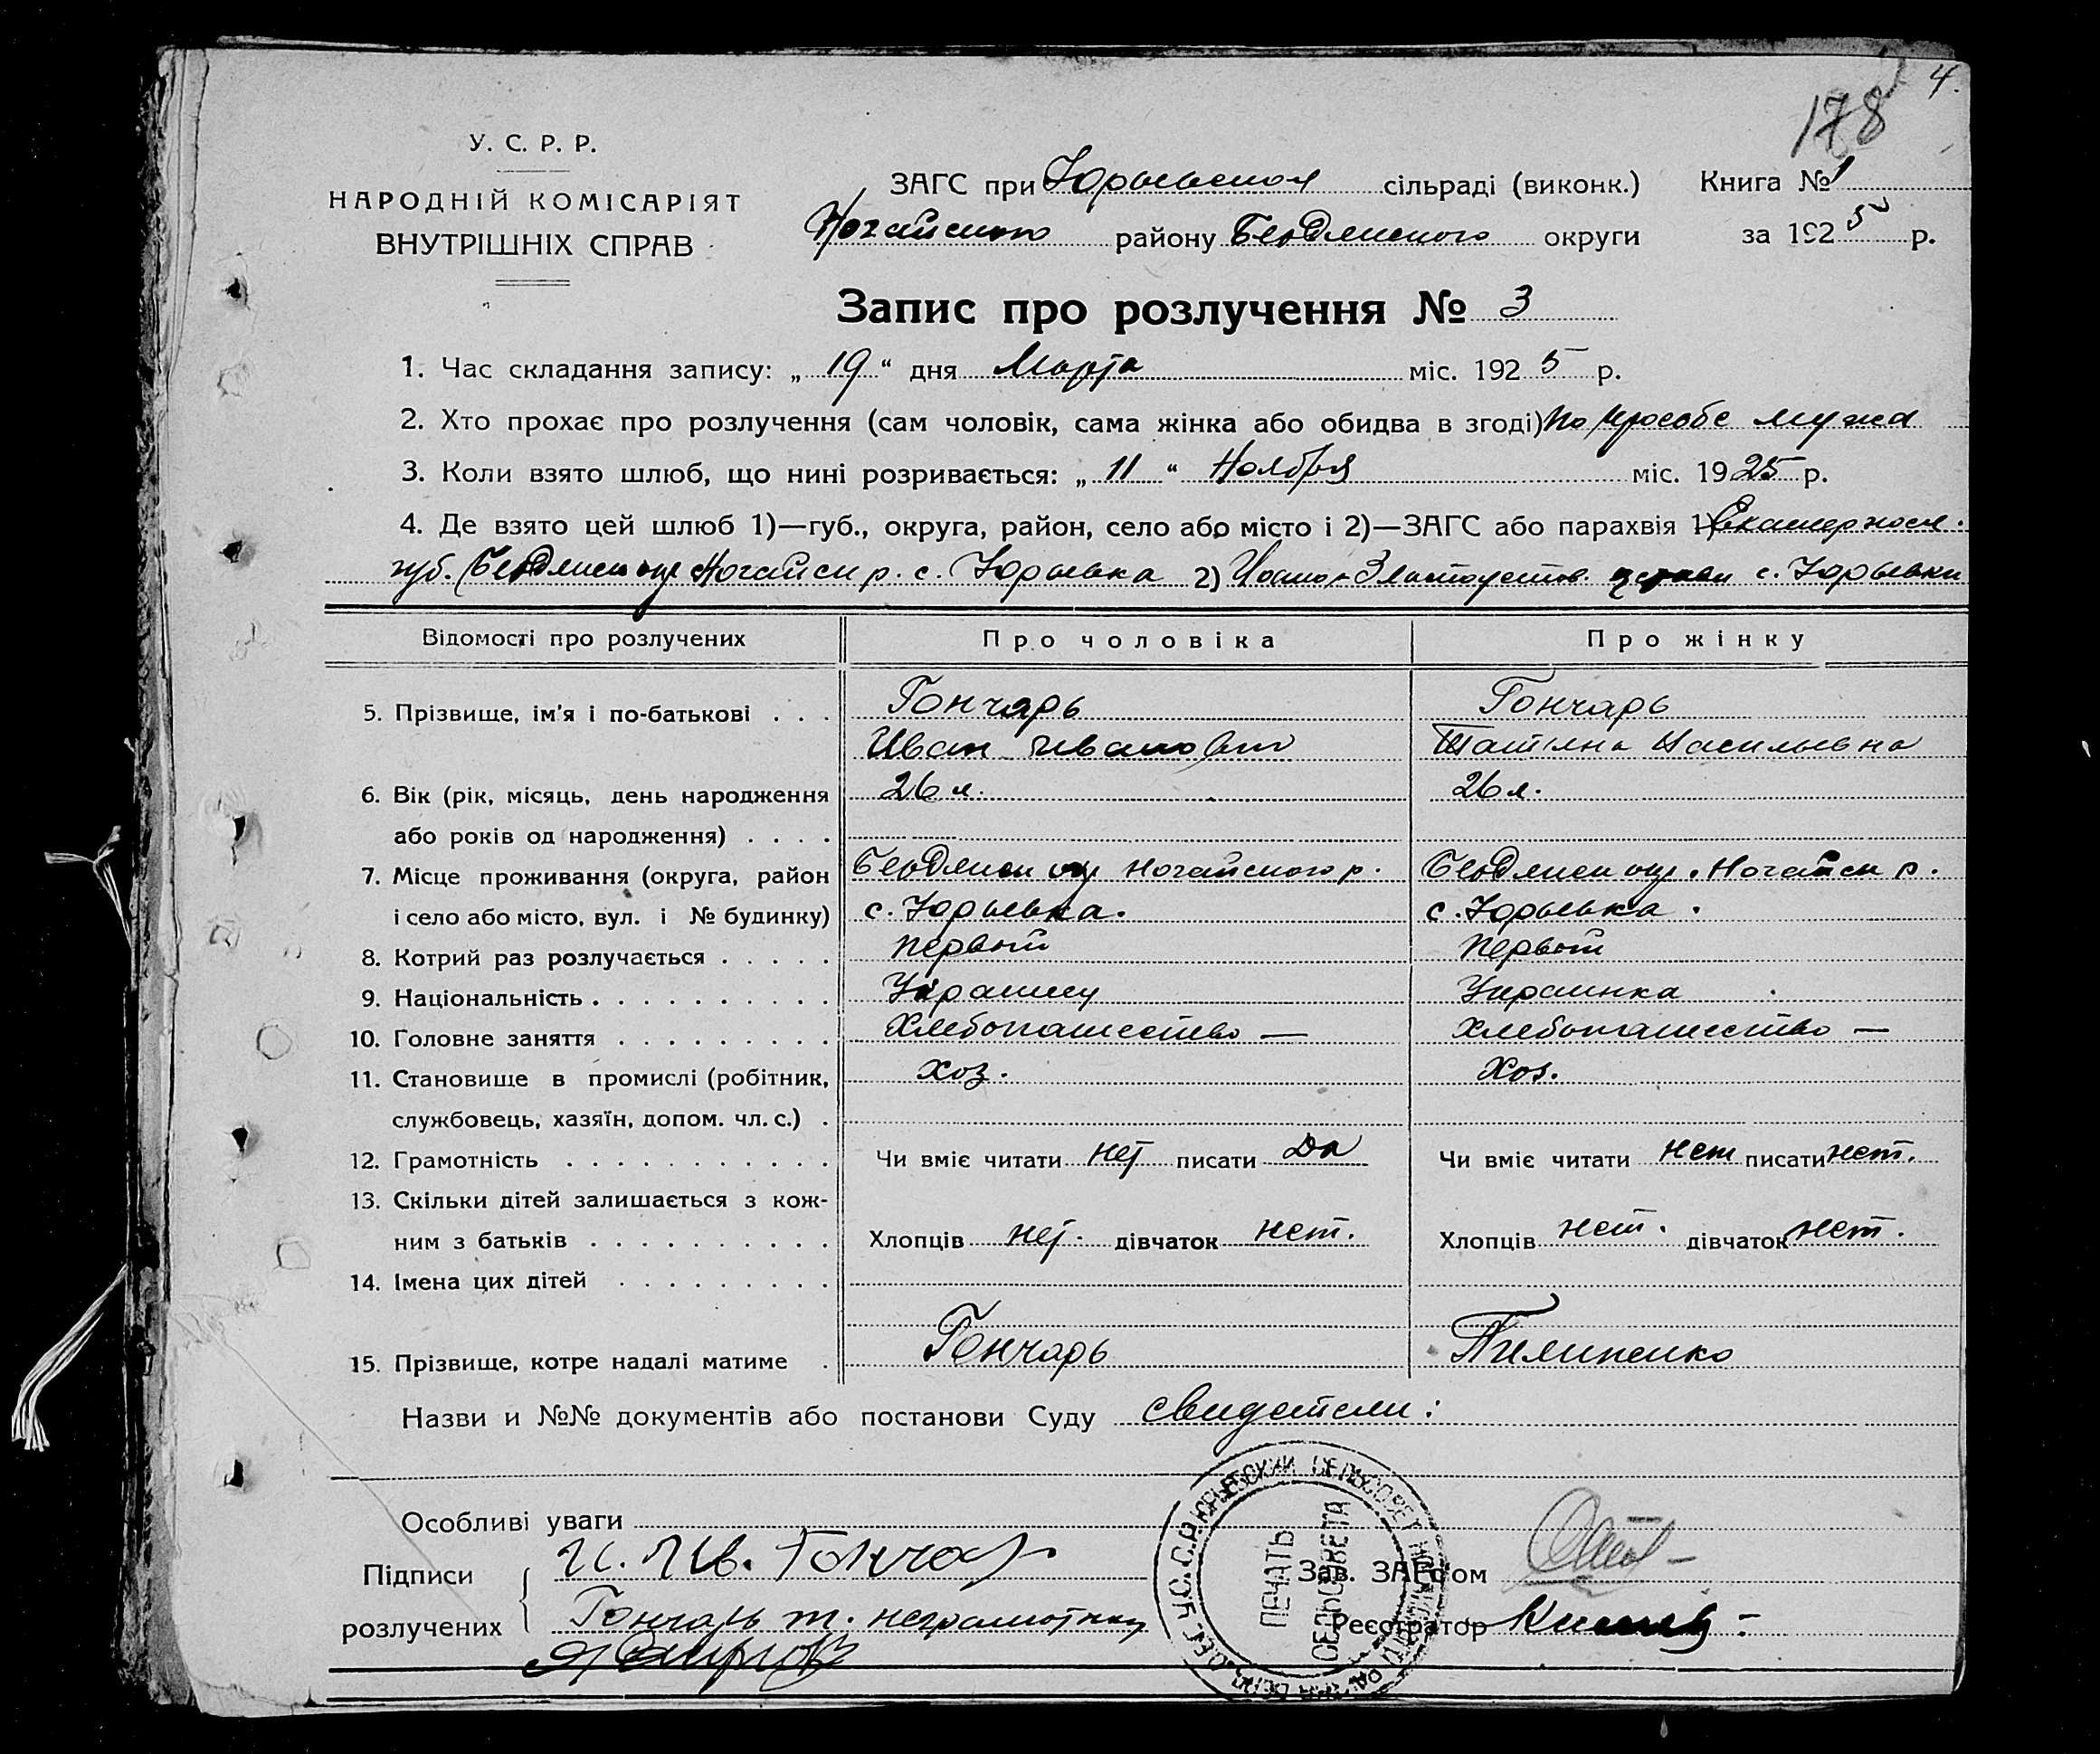 4.
178
У. С. Р. Р.
НАРОДНІЙ КОМІСАРІЯТ
ВНУТРІШНІХ СПРАВ
ЗАГС при Юрьевском сільраді (виконк.) Книга № 1
Ногайского району Бердянского округи за 1925 р.
Запис про розлучення № 3
1. Час складання запису: „ 19 “ дня Марта міс. 1925 р.
2. Хто прохає про розлучення (сам чоловік, сама жінка або обидва в згоді) По просьбе мужа
3. Коли взято шлюб, що нині розривається: „ 11 “ Ноября міс. 1925 р.
4. Де взято цей шлюб 1)—губ., округа, район, село або місто і 2)—ЗАГС або парахвія 1) Екатериносл.
губ. Бердянск окр Ногайск р. с. Юрьевка 2) Иоано-Златоустов. с. Юрьевки
Відомості про розлучених Про чоловіка Про жінку
5. Прізвище, ім'я і по-батькові . . . Гончарь Гончарь
Иван Иванович Татіяна Васильевна
6. Вік (рік, місяць, день народження 26 л. 26 л.
або років од народження) . . . .
7. Місце проживання (округа, район Бердянск окр Ногайского р. Бердянск окр. Ногайск р.
і село або місто, вул. і № будинку) с. Юрьевка. с. Юрьевка.
8. Котрий раз розлучається . . . . . первый первый
9. Національність . . . . . . . . . . Украинец Украинка
10. Головне заняття . . . . . . . . . Хлебопашество — Хлебопашество —
11. Становище в промислі (робітник, хоз. хоз.
службовець, хазяїн, допом. чл. с.) .
12. Грамотність . . . . . . . . . . . Чи вміє читати нет писати Да Чи вміє читати нет писати нет.
13. Скільки дітей залишається з кож-
ним з батьків . . . . . . . . . . Хлопців нет. дівчаток нет. Хлопців нет. дівчаток нет.
14. Імена цих дітей . . . . . . . . .
15. Прізвище, котре надалі матиме . Гончарь Пилипенко
Назви и №№ документів або постанови Суду свидетели:
Особливі уваги
Підписи И. Ив. Гончар Зав. ЗАГс'ом
розлучених Гончарь Т. неграмотная Реєстратор
ЮРЬЕВСКИЙ СЕЛЬСОВЕТ
У.С.С.Р.
ПЕЧАТЬ
СЕЛЬСОВЕТА